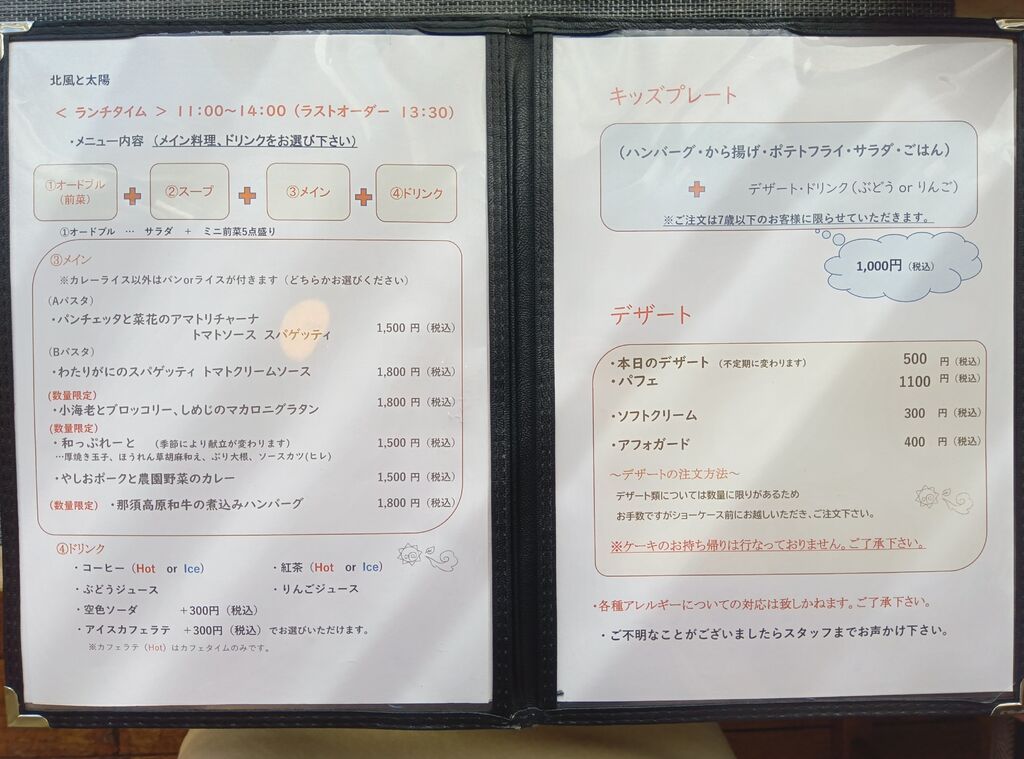 北風と太陽
< ランチタイム > 11:00～14:00 (ラストオーダー 13:30)
・メニュー内容 (メイン料理、ドリンクをお選び下さい)
①オードブル
(前菜)
+
②スープ
+
③メイン
+
④ドリンク
①オードブル … サラダ + ミニ前菜5点盛り
③メイン
※カレーライス以外はパンorライスが付きます (どちらかお選びください)
(Aパスタ)
・パンチェッタと菜花のアマトリチャーナ
トマトソース スパゲッティ 1,500 円 (税込)
(Bパスタ)
・わたりがにのスパゲッティ トマトクリームソース 1,800 円 (税込)
(数量限定)
・小海老とブロッコリー、しめじのマカロニグラタン 1,800 円 (税込)
(数量限定)
・和っぷれーと (季節により献立が変わります) 1,500 円 (税込)
…厚焼き玉子、ほうれん草胡麻和え、ぶり大根、ソースカツ(ヒレ)
・やしおポークと農園野菜のカレー 1,500 円 (税込)
(数量限定) ・那須高原和牛の煮込みハンバーグ 1,800 円 (税込)
④ドリンク
・コーヒー (Hot or Ice) ・紅茶 (Hot or Ice)
・ぶどうジュース ・りんごジュース
・空色ソーダ +300円 (税込)
・アイスカフェラテ +300円 (税込) でお選びいただけます。
※カフェラテ (Hot) はカフェタイムのみです。
キッズプレート
(ハンバーグ・から揚げ・ポテトフライ・サラダ・ごはん)
+ デザート・ドリンク (ぶどう or りんご)
※ご注文は7歳以下のお客様に限らせていただきます。
1,000円 (税込)
デザート
・本日のデザート (不定期に変わります) 500 円 (税込)
・パフェ 1100 円 (税込)
・ソフトクリーム 300 円 (税込)
・アフォガード 400 円 (税込)
～デザートの注文方法～
デザート類については数量に限りがあるため
お手数ですがショーケース前にお越しいただき、ご注文下さい。
※ケーキのお持ち帰りは行なっておりません。ご了承下さい。
・各種アレルギーについての対応は致しかねます。ご了承下さい。
・ご不明なことがございましたらスタッフまでお声かけ下さい。